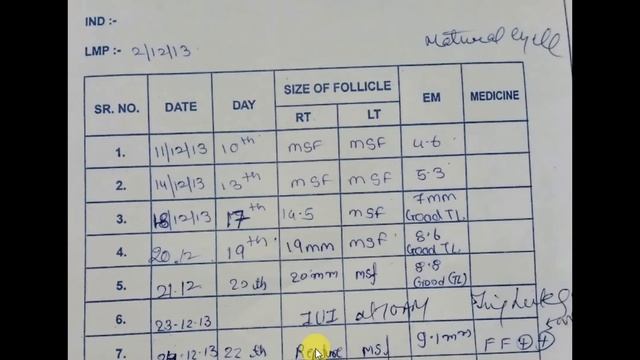 IND :-
LMP :- 2/12/13
Natural Cycle
SR. NO. DATE DAY SIZE OF FOLLICLE EM MEDICINE
RT LT
1. 11/12/13 10th MSF MSF 4.6
2. 14/12/13 13th MSF MSF 5.3
3. 18/12/13 17th 14.5 MSF 7mm Good TL
4. 20.12 19th 19mm MSF 8.6 Good TL
5. 21.12 20th 20mm MSF 8.8 Good (TL)
6. 23-12-13 IUI at 10 AM Inj
7. 24-12-13 22th MSF 9.1mm FF